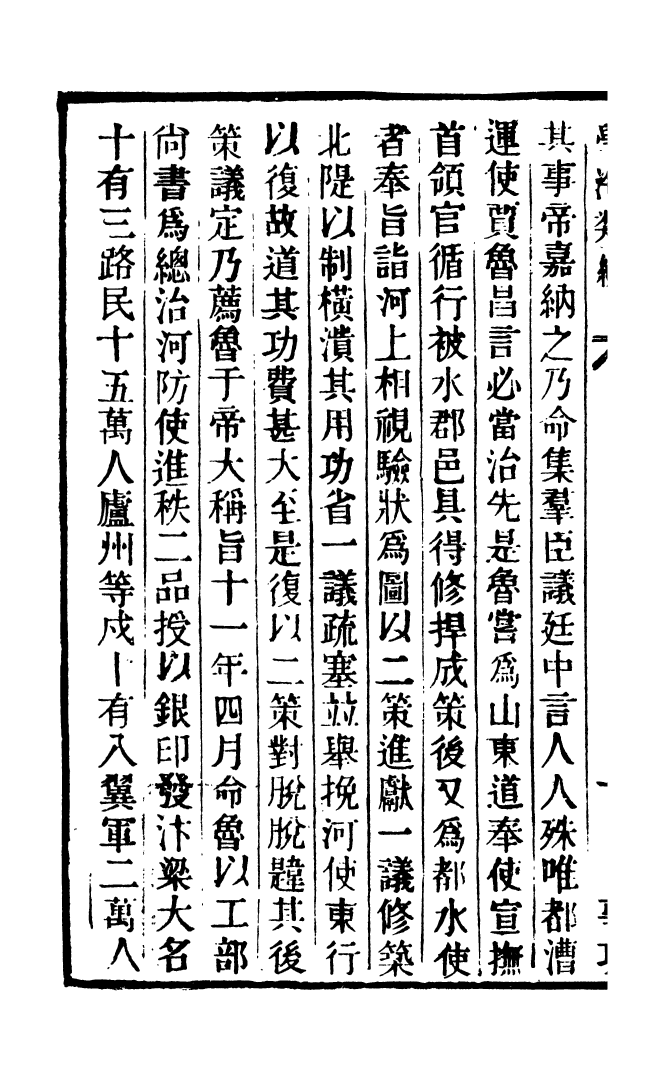 學海類編
其事帝嘉納之乃命集羣臣議廷中言人人殊唯都漕
運使賈魯昌言必當治先是魯嘗爲山東道奉使宣撫
首領官循行被水郡邑具得修捍成策後又爲都水使
者奉旨詣河上相視驗狀爲圖以二策進獻一議修築
北隄以制橫潰其用功省一議疏塞並舉挽河使東行
以復故道其功費甚大至是復以二策對脫脫韙其後
策議定乃薦魯于帝大稱旨十一年四月命魯以工部
尙書爲總治河防使進秩二品授以銀印發汴梁大名
十有三路民十五萬人廬州等戍十有八翼軍二萬人